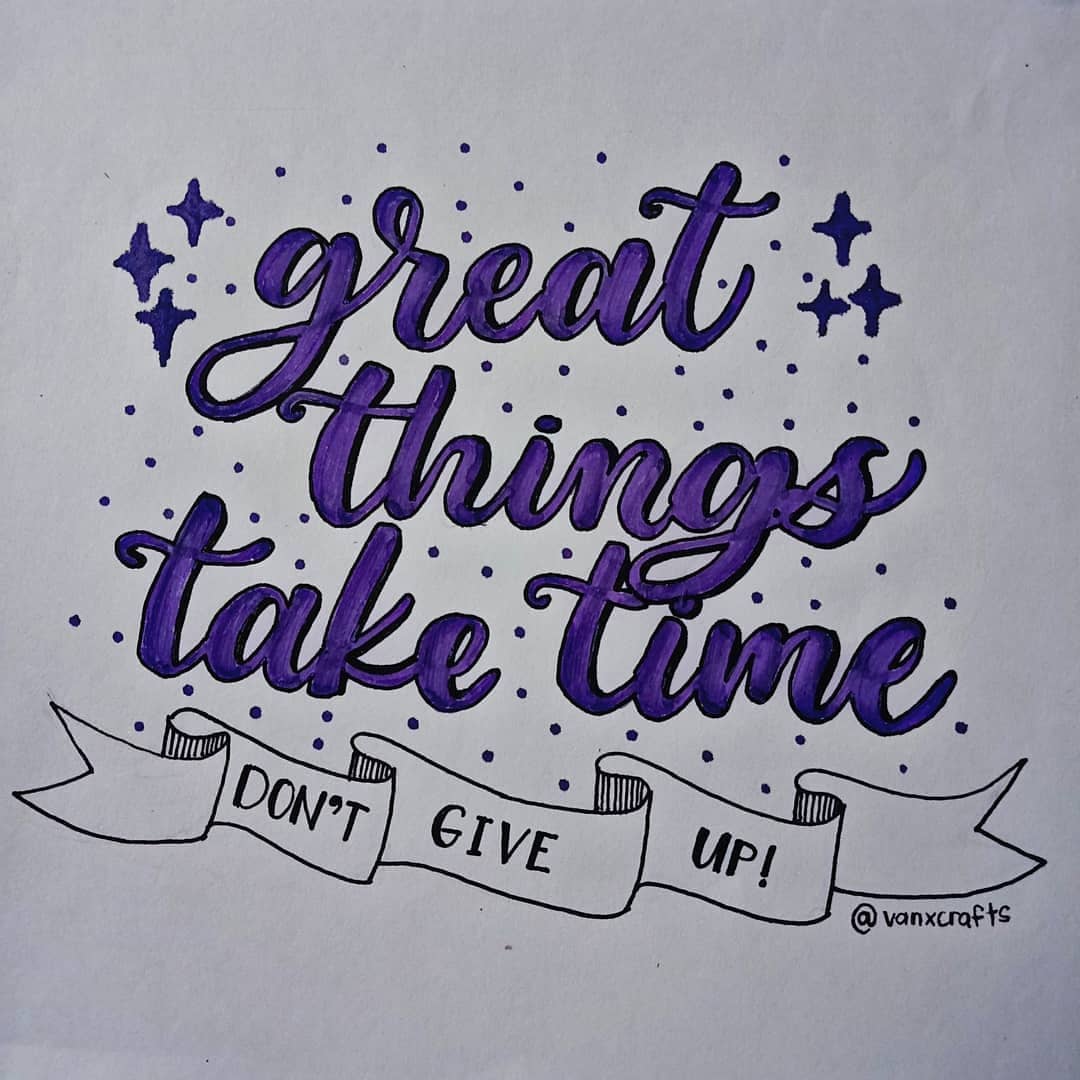 great
things
take time
DON'T GIVE UP!
@vanxcrafts